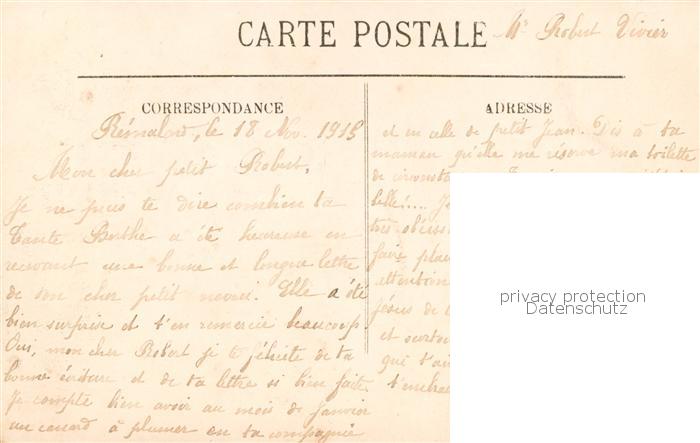 CARTE POSTALE
Mr Robert Vivier
CORRESPONDANCE
Rémalard, le 18 Nov. 1915
Mon cher petit Robert,
Je ne puis te dire combien ta
Tante Berthe a été heureuse en
recevant une bonne et longue lettre
de son cher petit neveu. Elle a été
bien surprise et t'en remercie beaucoup
Oui, mon cher Robert je te félicite de ta
bonne écriture et de ta lettre si bien faite
Je compte bien avoir au mois de janvier
un canard à plumer en ta compagnie
ADRESSE
et en celle de petit Jean. Dis à ta
maman qu'elle me réserve ma toilette
de
belle!... Je
très
faire
attention
Jésus de
et surtout
qui t'ai
t'embra
privacy protection
Datenschutz